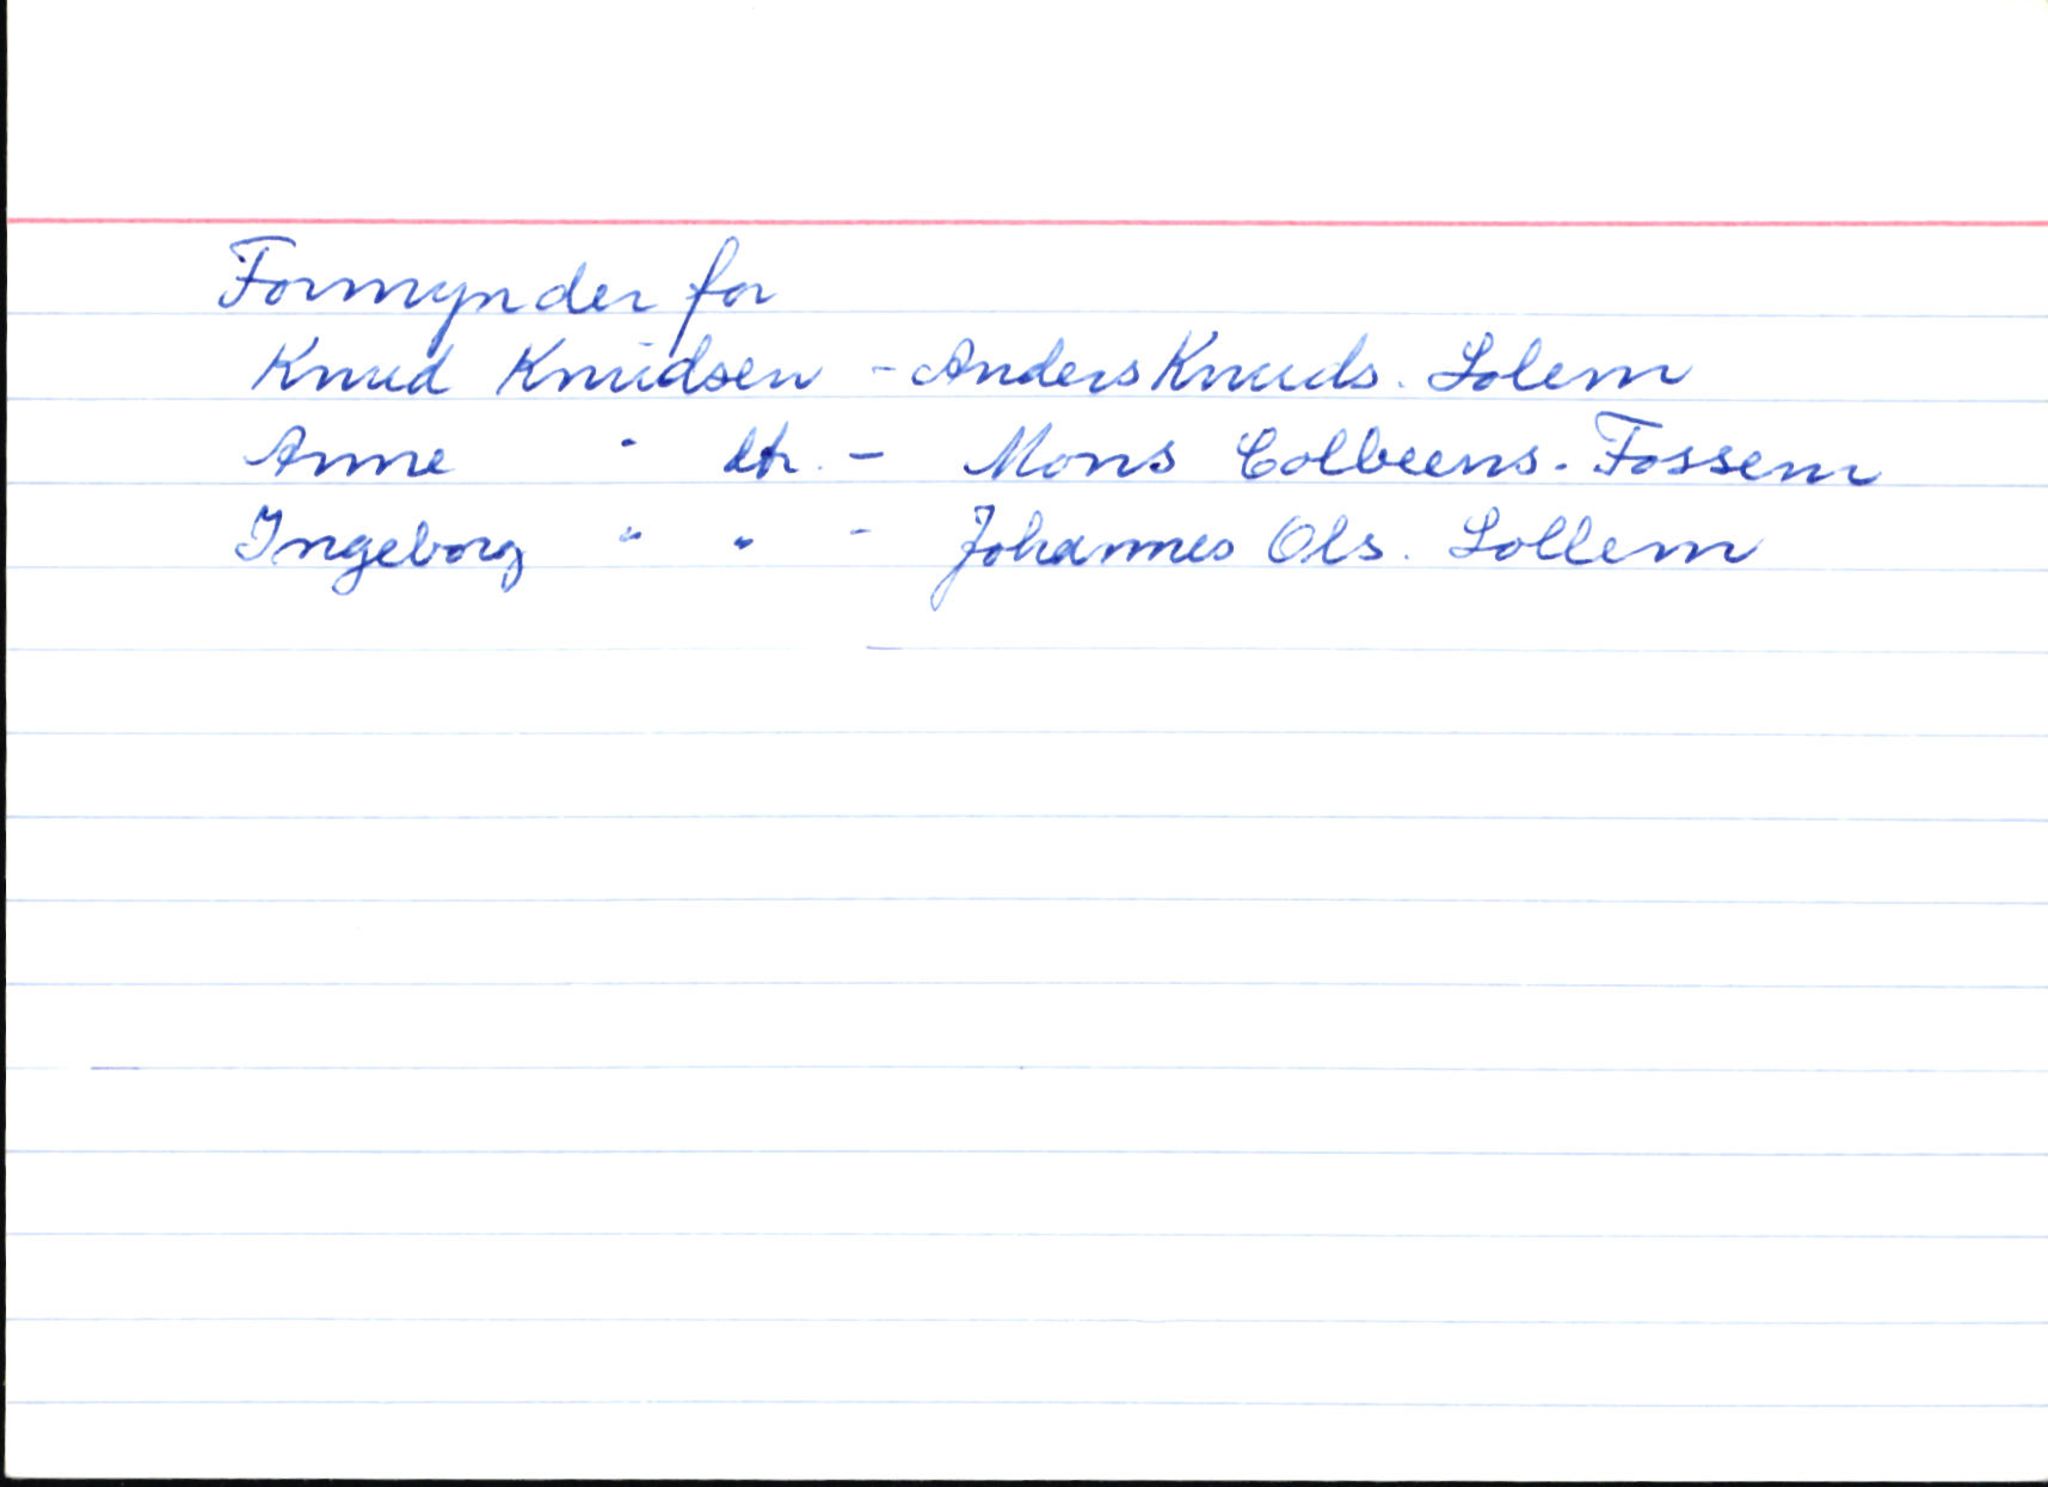 Formynder for
Knud Knudsen - Anders Knuds. Solem
Anne " dtr. - Mons Colbeens. Fossem
Ingeborg " " - Johannes Ols. Sollem